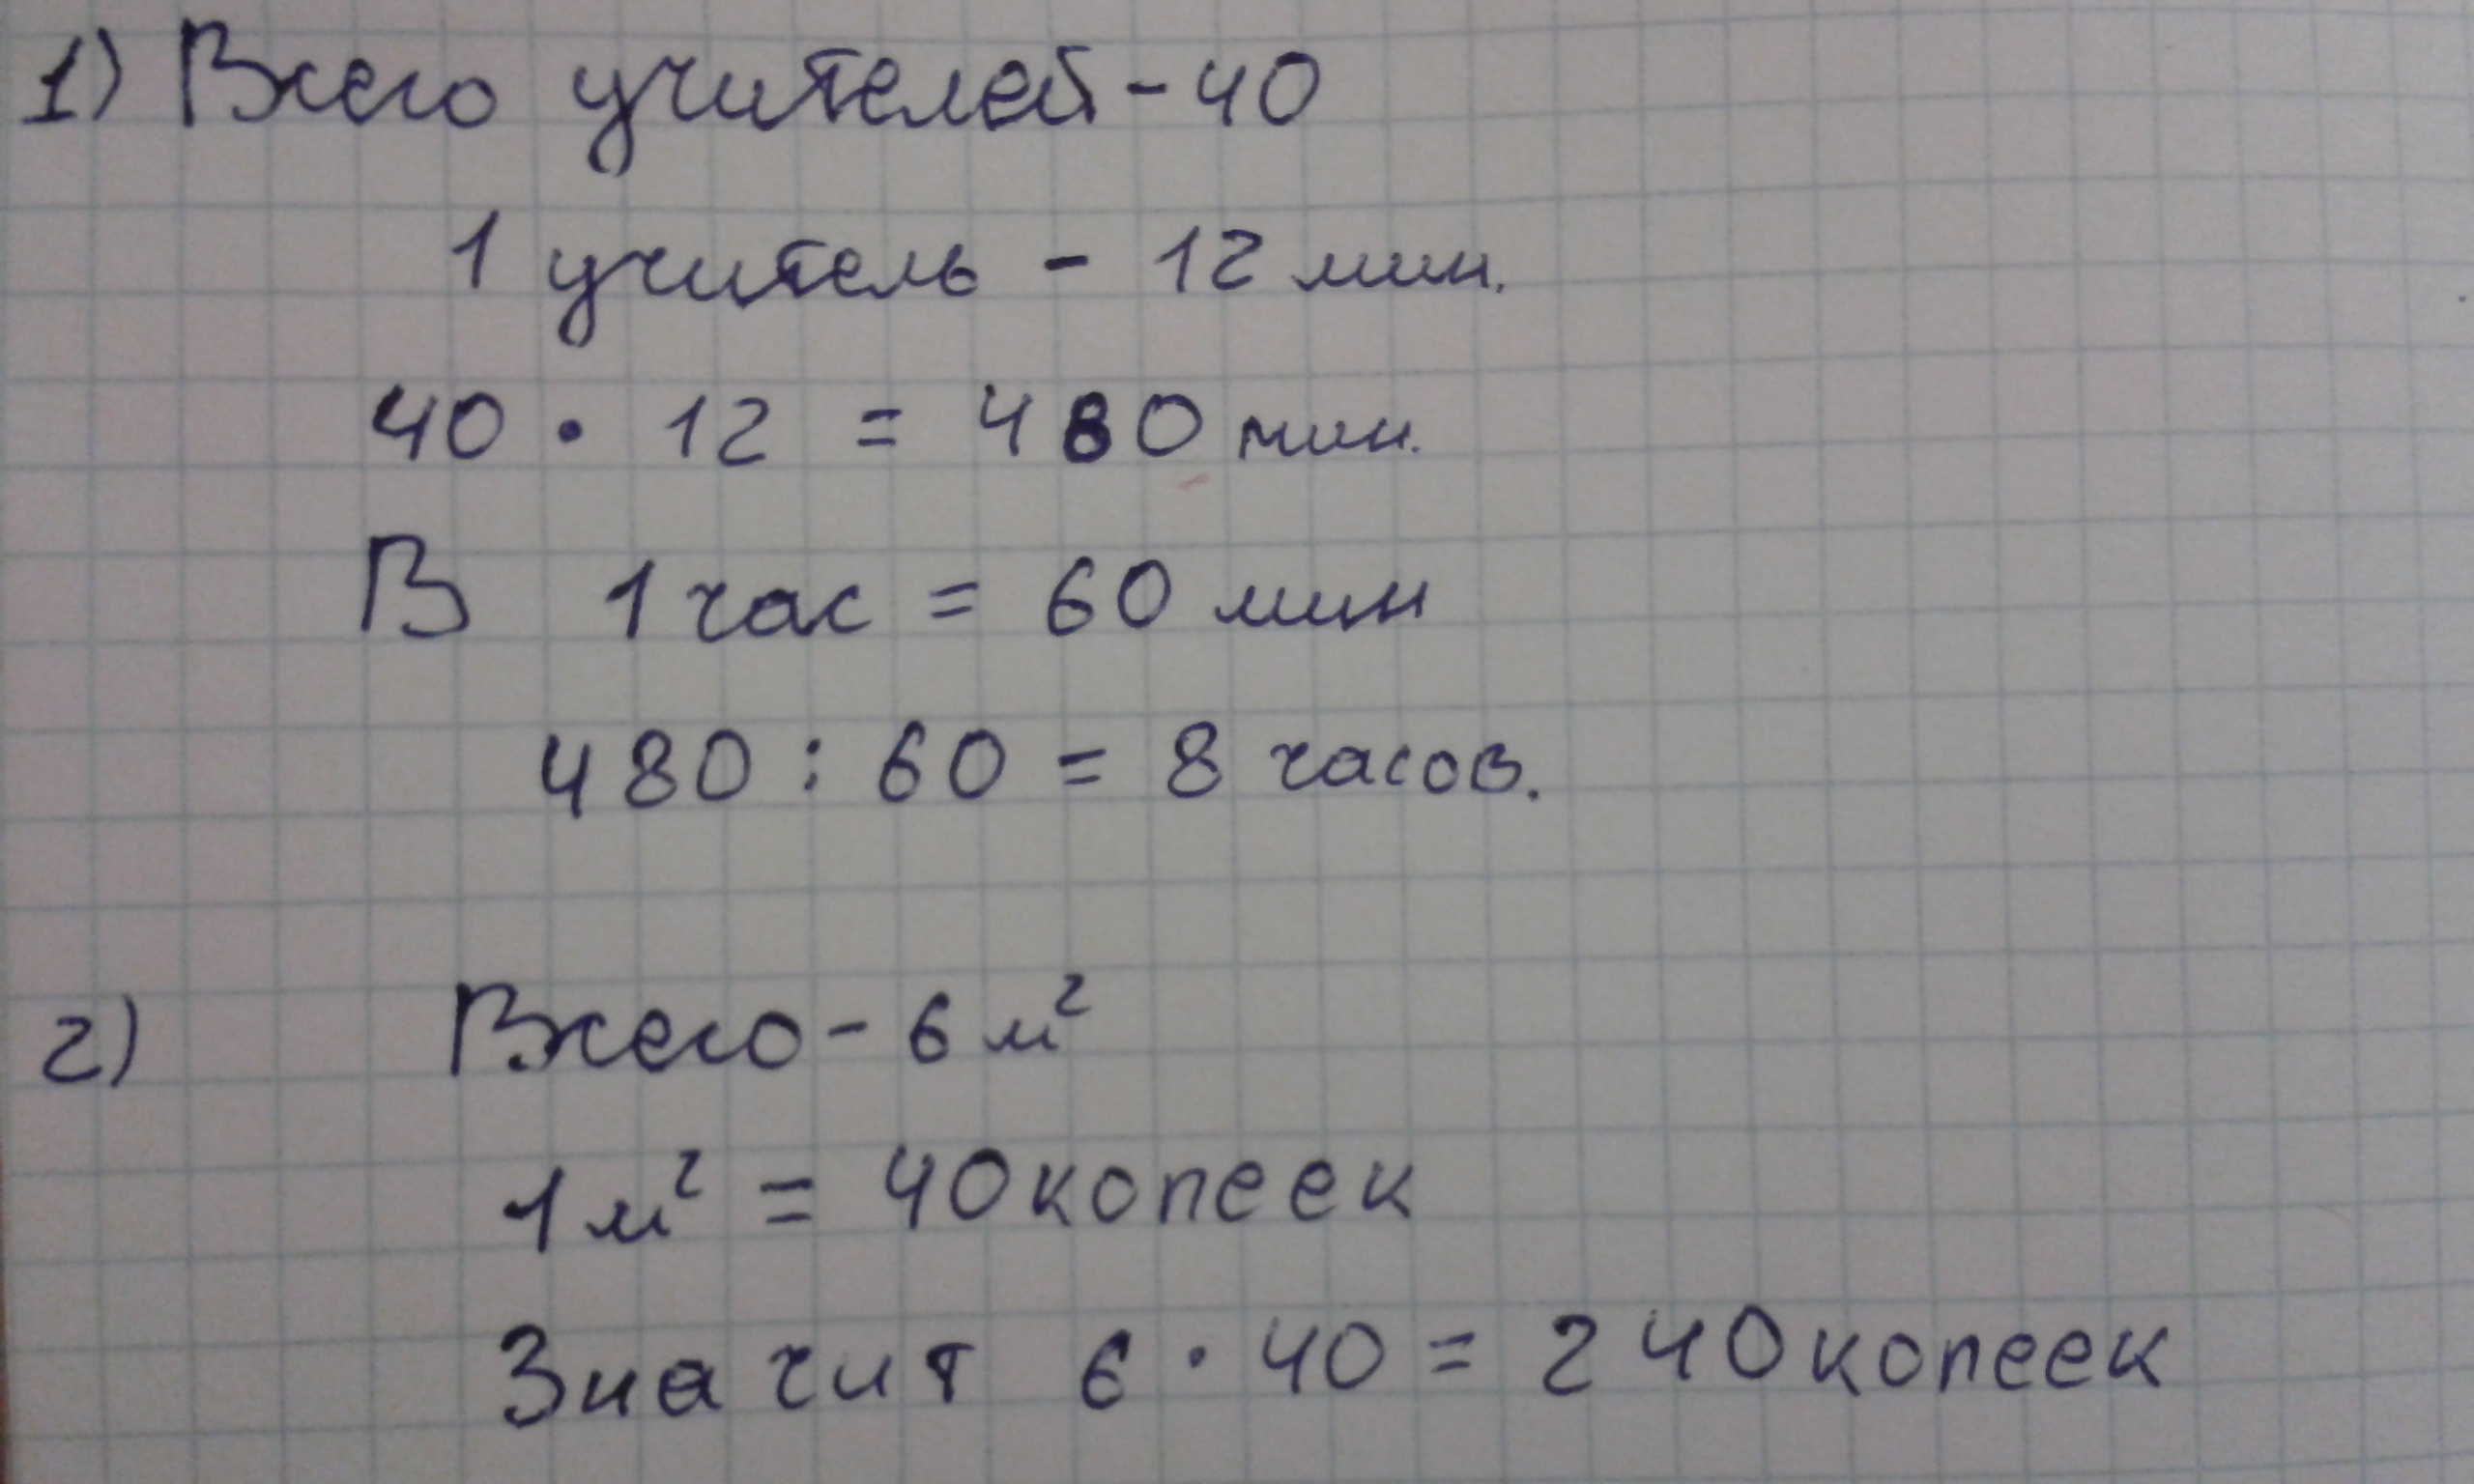 1) Всего учителей - 40
1 учитель - 12 мин.
40 · 12 = 480 мин.
В 1 час = 60 мин
480 : 60 = 8 часов.
2) Всего - 6 м²
1 м² = 40 копеек
Значит 6 · 40 = 240 копеек